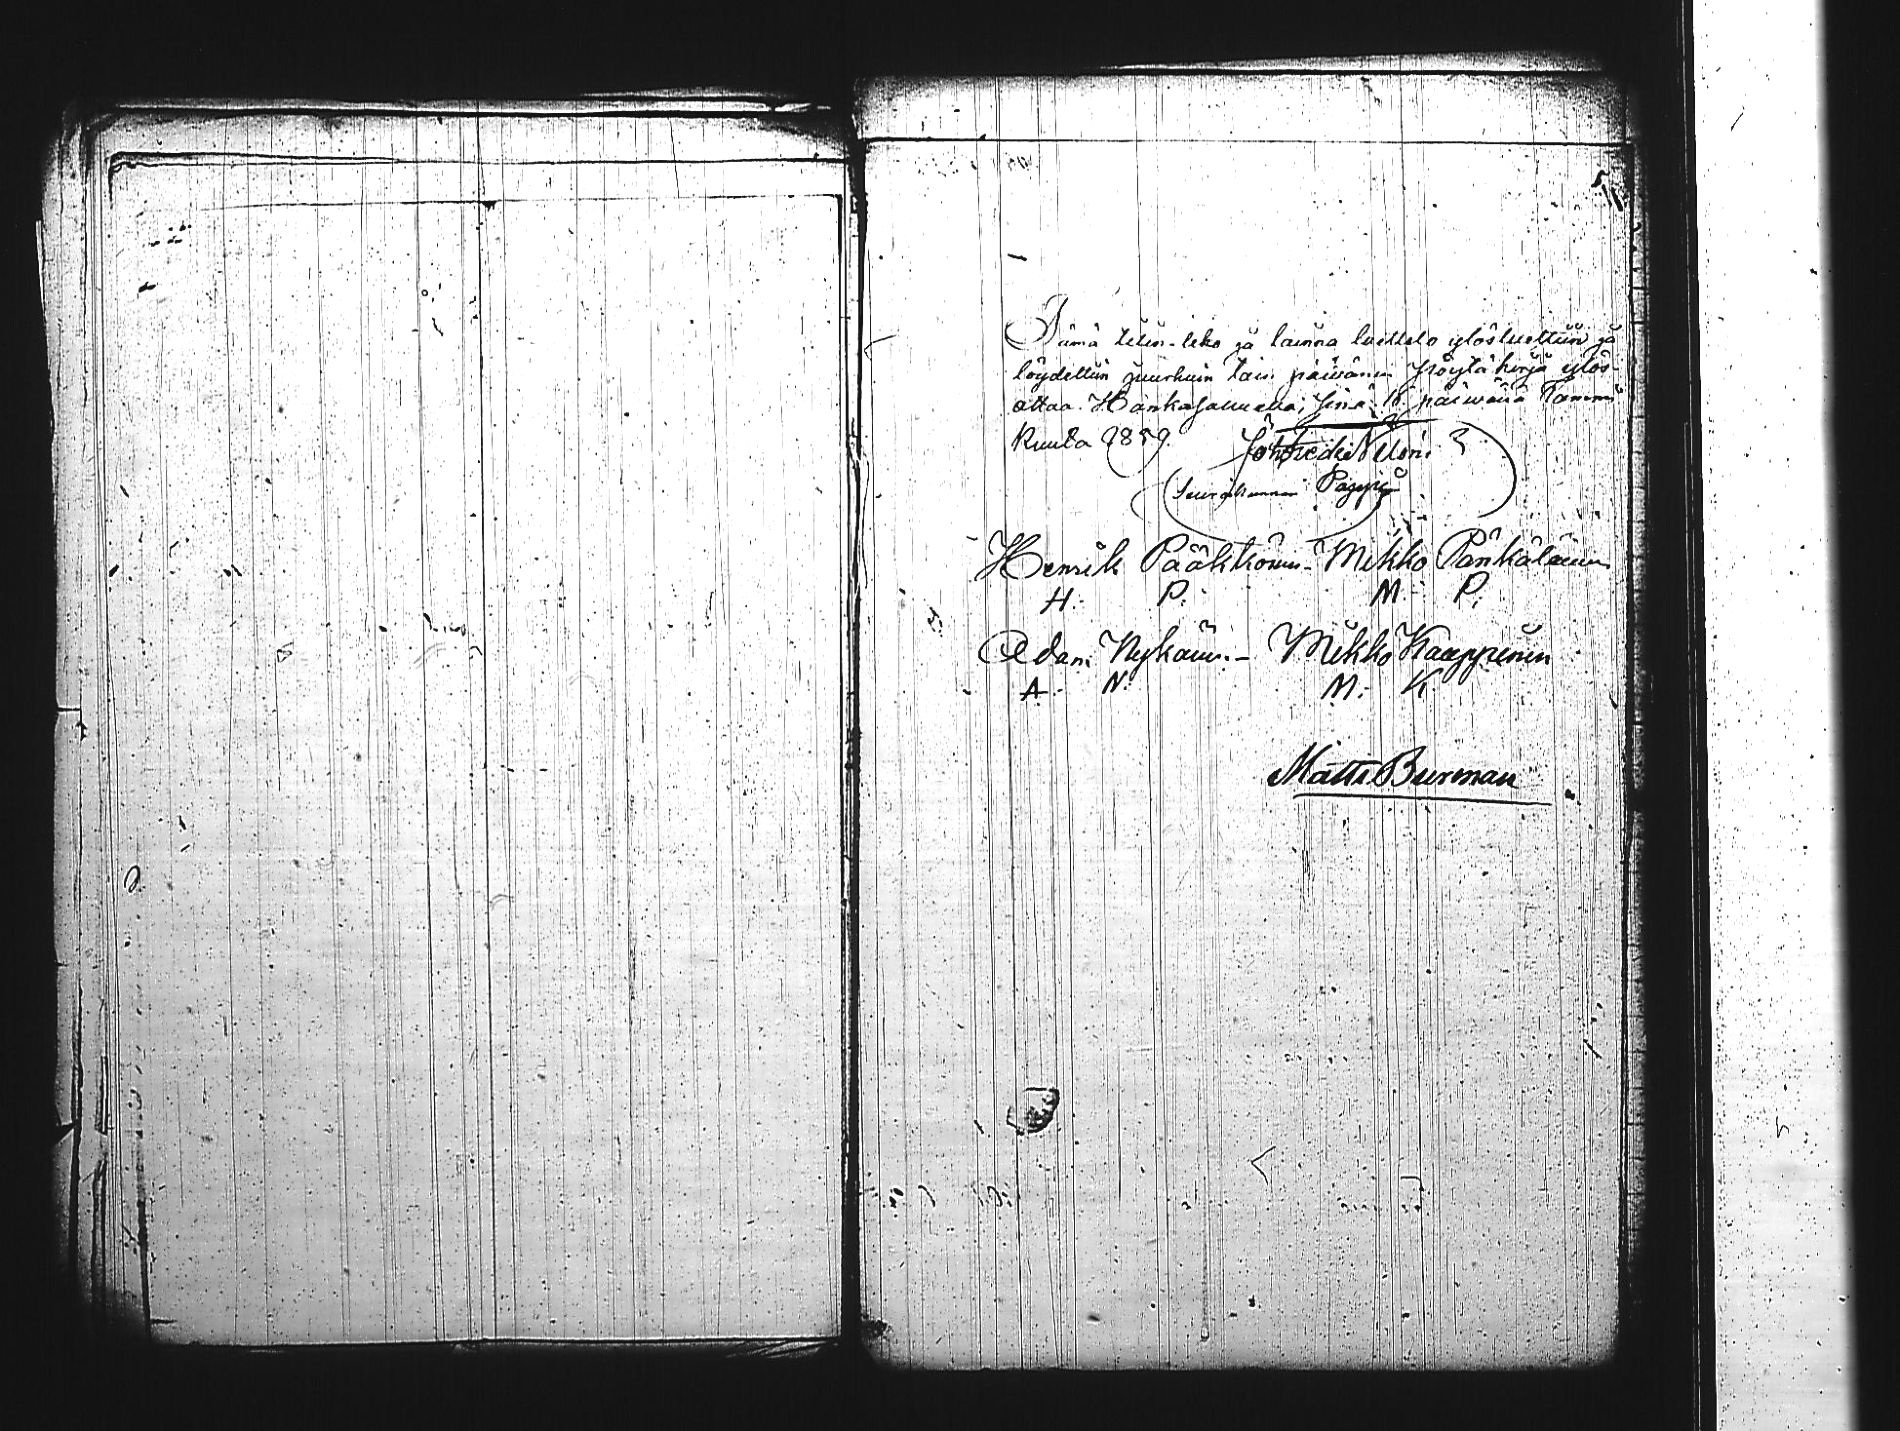 Tämä tilin-teko ja lainna luettelo ylösluettiin ja
löydettiin juurkuin tain päiwänen Pöytäkirja ylös-
ottaa. Hankasalmella, sinä 16 päiwänä Tammi
kuuta 1859.
Seurakunnan Pappi
Henrik Pääkkönen - Mikko Pänkäläinen
H. P. M. P.
Adam Nykänen - Mikko Kauppinen
A. N. M. K.
Matts Burman